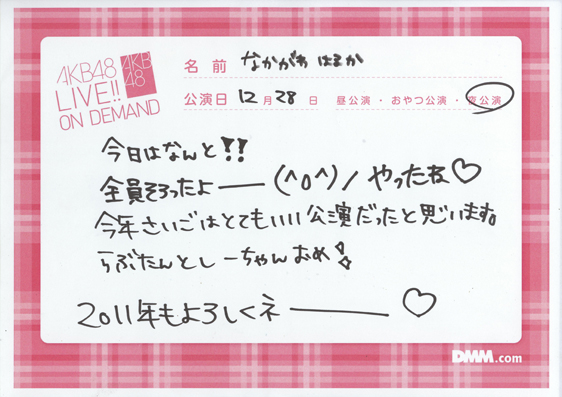 AKB48
LIVE!!
ON DEMAND
AKB
48
名前 なかがわ はるか
公演日 12月28日 昼公演・おやつ公演・夜公演
今日はなんと!!
全員そろったよー(^o^)/ やったね♡
今年さいごはとてもいい公演だったと思います。
らぶたんとしーちゃんおめ!
2011年もよろしくネー ♡
DMM.com